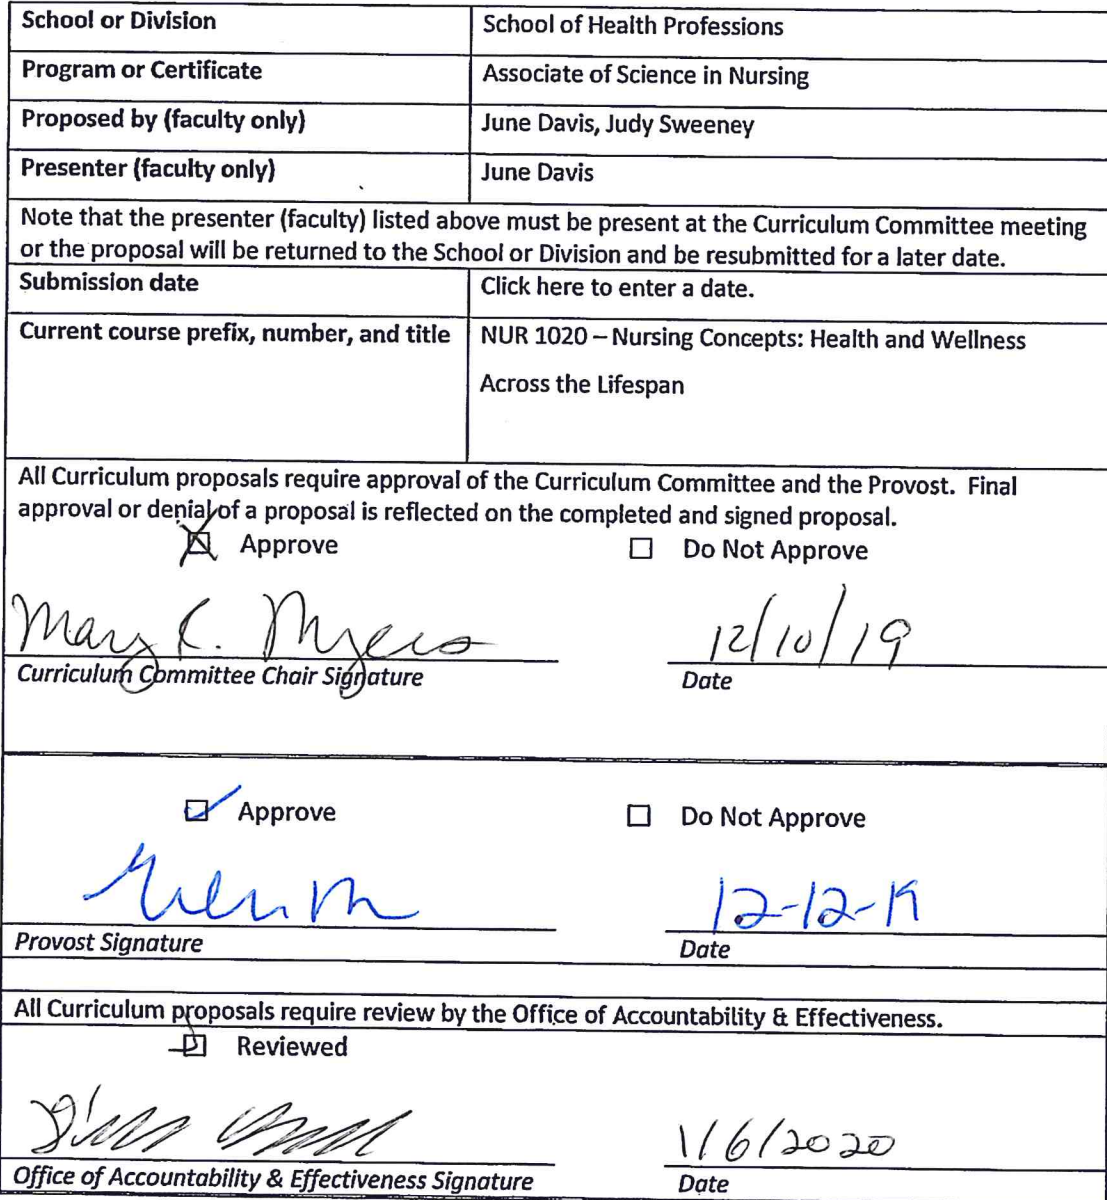 School or Division School of Health Professions
Program or Certificate Associate of Science in Nursing
Proposed by (faculty only) June Davis, Judy Sweeney
Presenter (faculty only) June Davis
Note that the presenter (faculty) listed above must be present at the Curriculum Committee meeting
or the proposal will be returned to the School or Division and be resubmitted for a later date.
Submission date Click here to enter a date.
Current course prefix, number, and title NUR 1020 – Nursing Concepts: Health and Wellness
Across the Lifespan
All Curriculum proposals require approval of the Curriculum Committee and the Provost. Final
approval or denial of a proposal is reflected on the completed and signed proposal.
Approve Do Not Approve
Mary R. Myers 12/10/19
Curriculum Committee Chair Signature Date
Approve Do Not Approve
12-12-19
Provost Signature Date
All Curriculum proposals require review by the Office of Accountability & Effectiveness.
Reviewed
1/6/2020
Office of Accountability & Effectiveness Signature Date